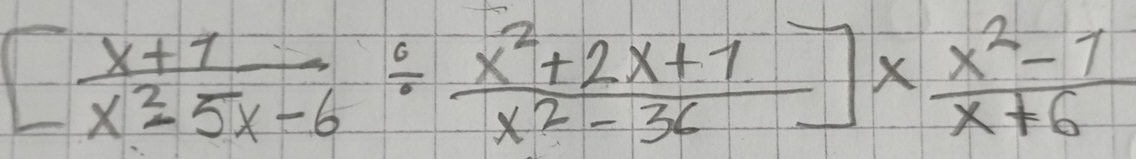 [ (x+1)/(x²-5x-6) ÷ (x²+2x+1)/(x²-36) ] × (x²-1)/(x+6)